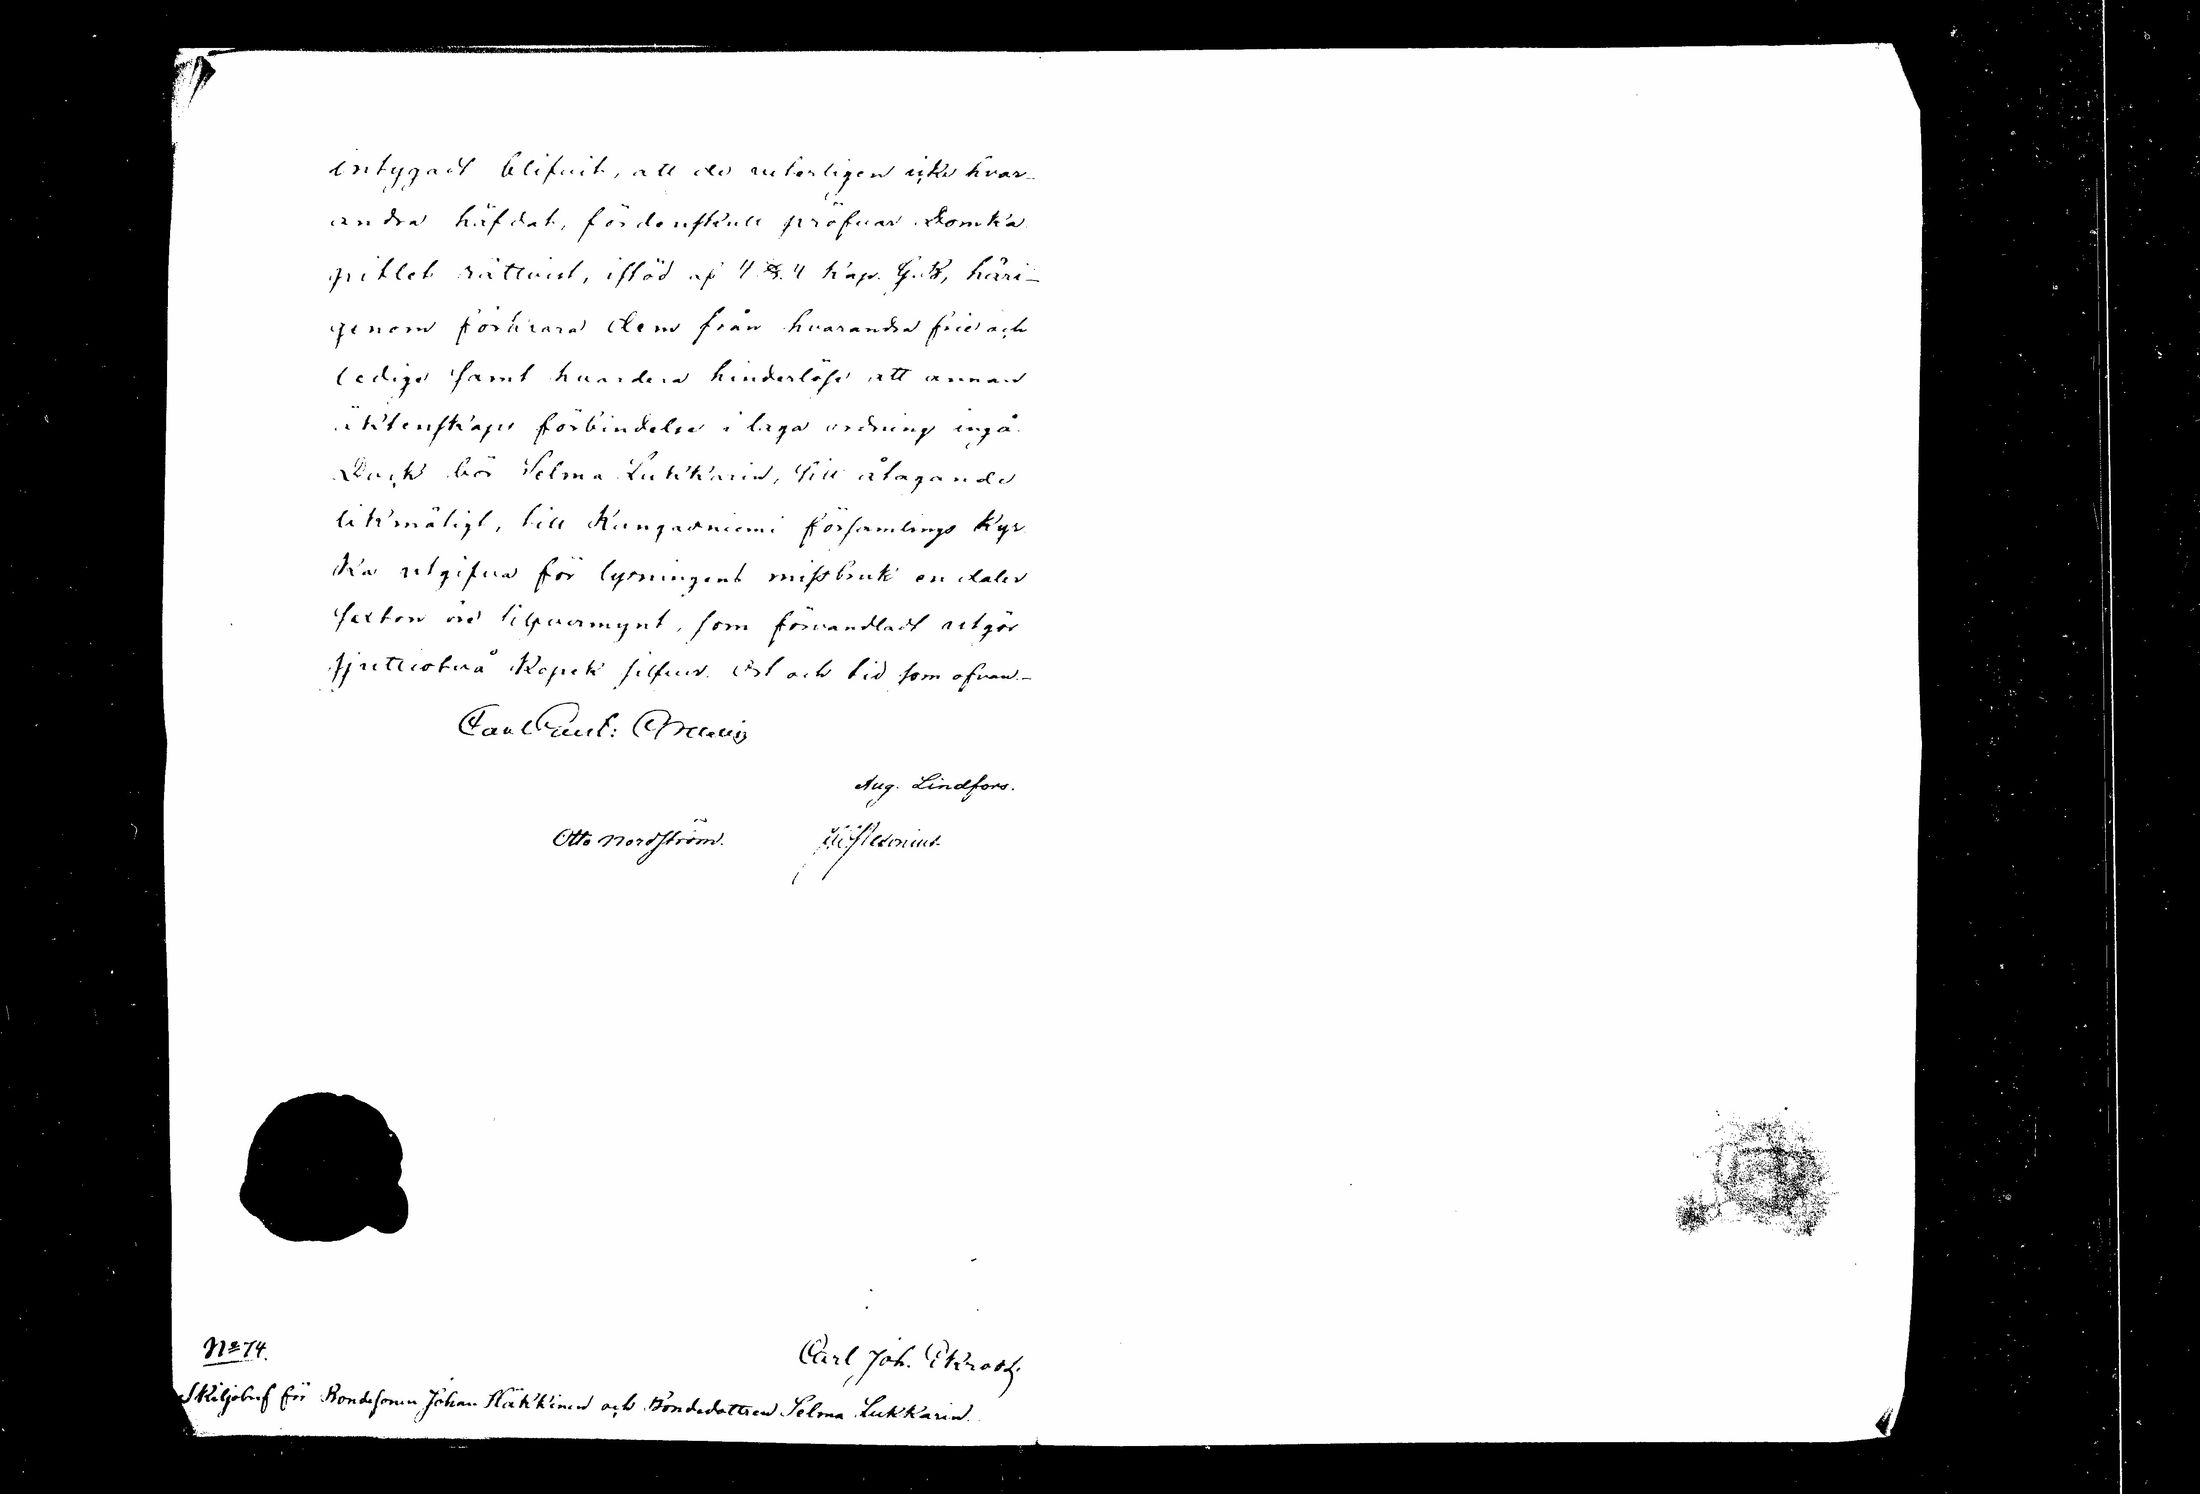 intygadt blifvit, att de veterligen icke hvar-
andra häfdat, fördenskull pröfvar Domka
pitlet rättvist, istöd af 4 §. 4 Kap. G. B, häri-
genom förklara dem från hvarandra frie och
ledige samt hvardera hinderlöse att annan
äktenskaps förbindelse i laga ordning ingå.
Dock bör Selma Lukkarin, till åtagande
likmätigt, till Kangasniemi församlings Kyr
ka utgifva för lysningens missbruk en daler
sexton öre silfvermynt, som förvandladt utgör
sjuttiotvå Kopek silfver. Ort och tid som ofvan.-
Aug. Lindfors.
Otto Nordström.
No 74.
Carl Joh. Ekroth.
Skiljobref för Bondesonen Johan Häkkinen och Bondedottren Selma Lukkarin.